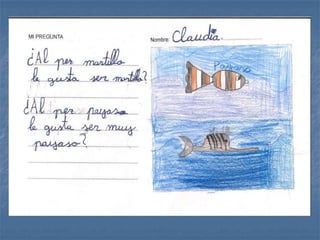 MI PREGUNTA
¿Al per martillo
le gusta ser martillo?
¿Al per payaso
le gusta ser muy
payaso?
Nombre: Claudia.